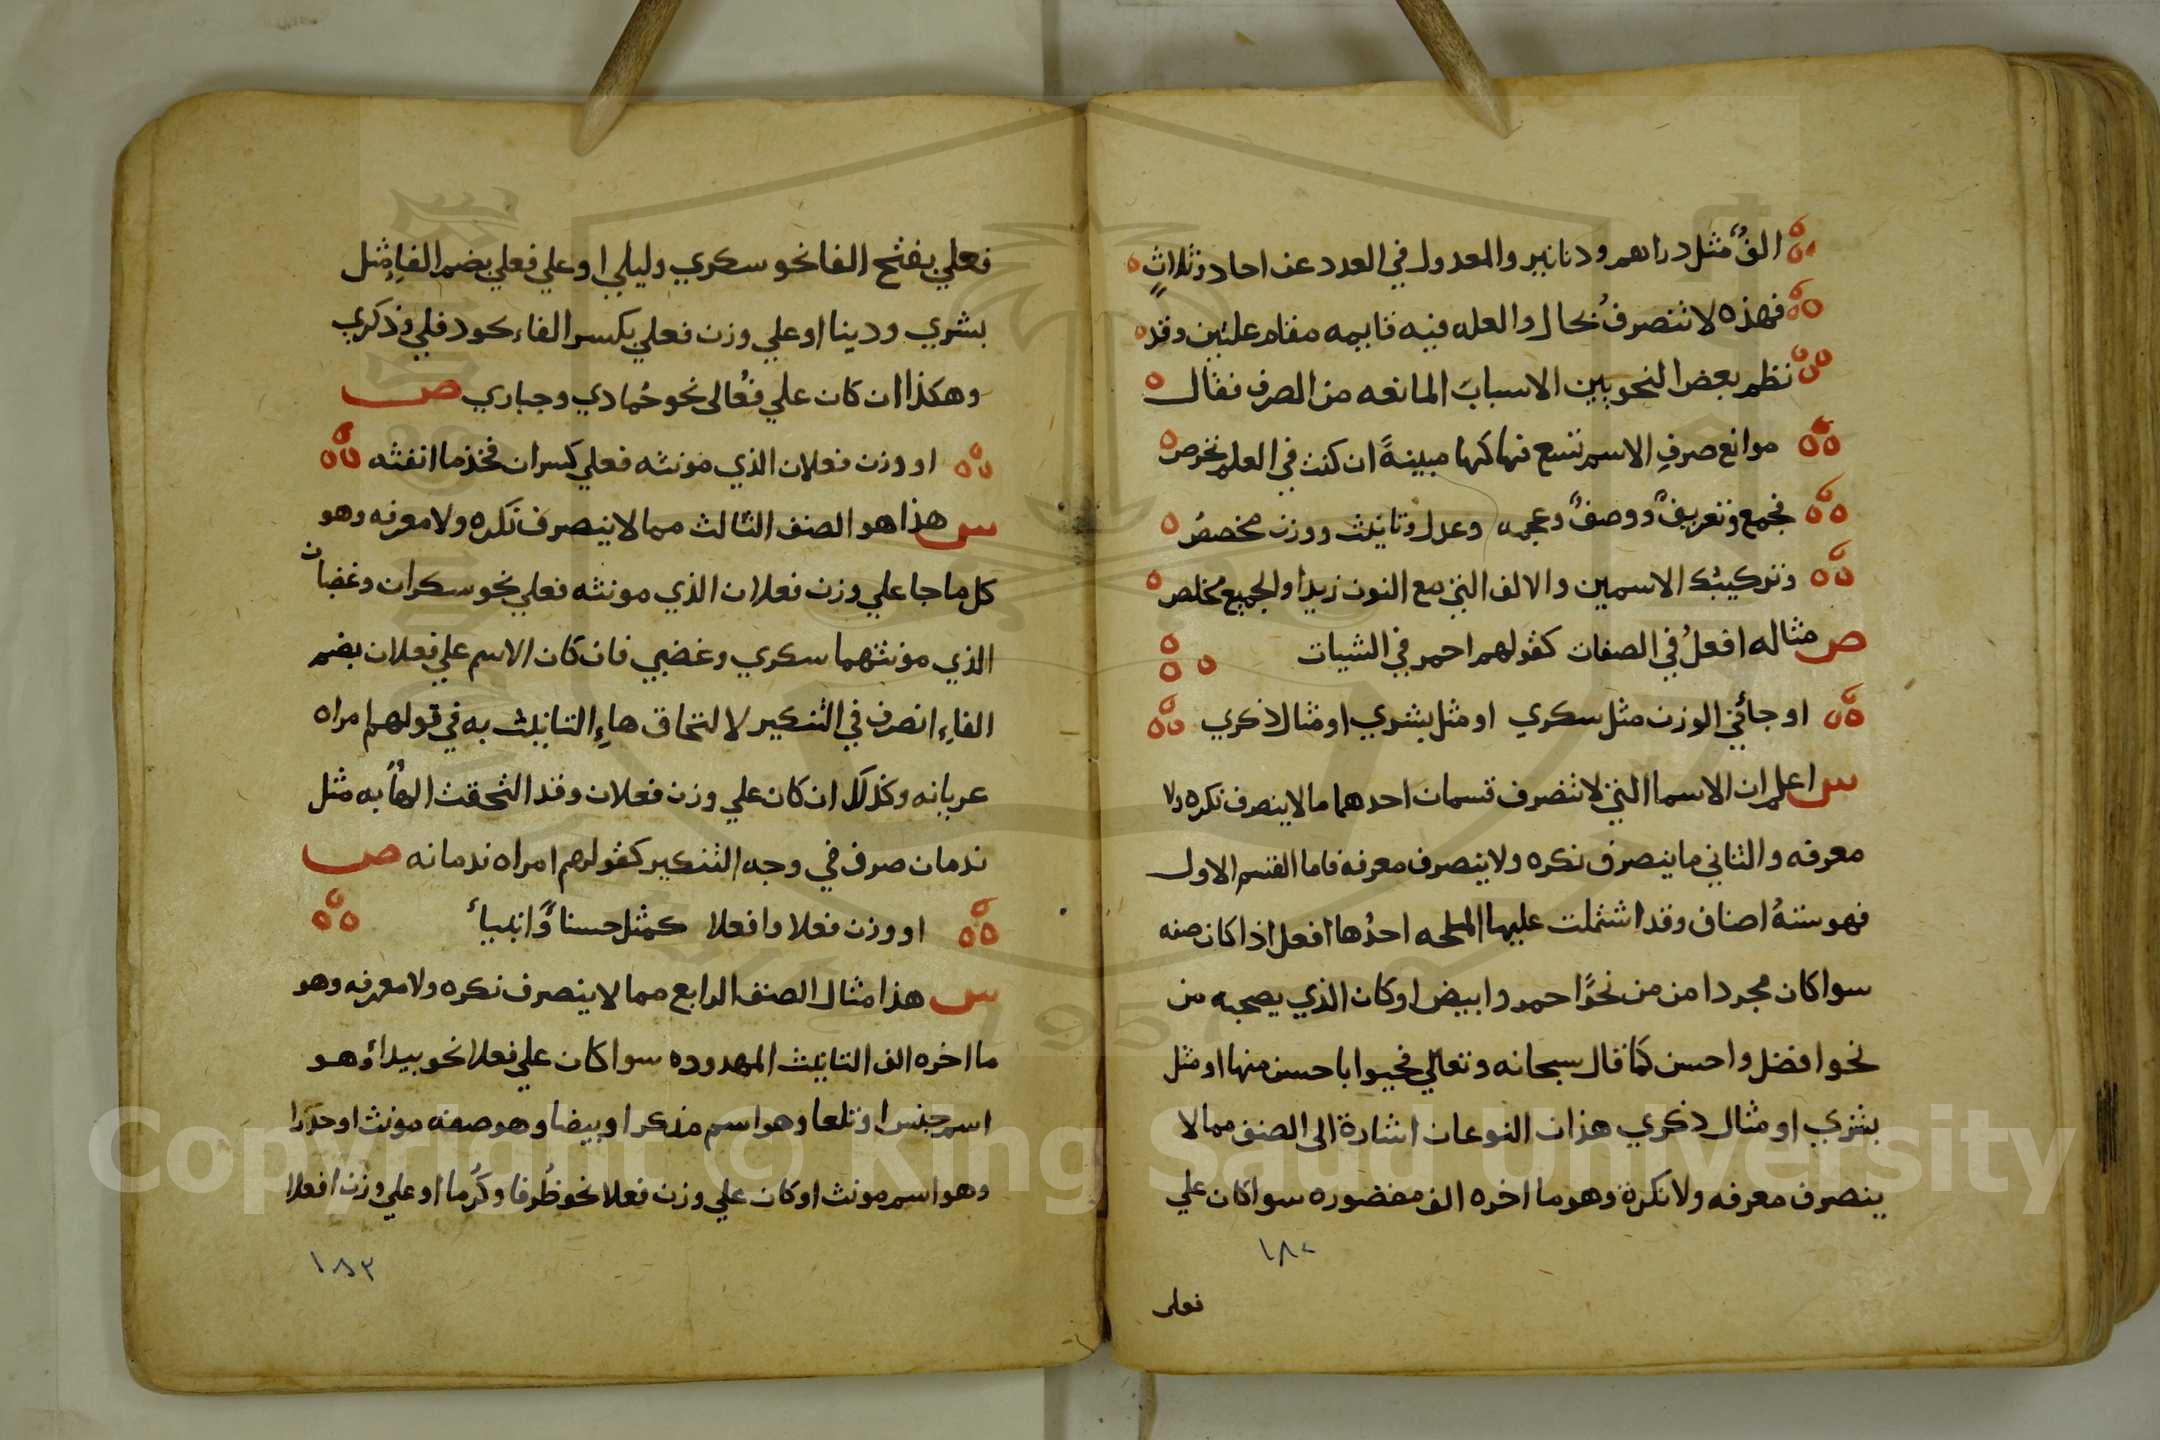 الفٌ مثل دراهم ودنانير والمعدول في العدد عن احاد وثلاثٍ
فهذه لا تنصرفُ بحال والعله فيه قايمه مقام علتين وقد
نظم بعض النحويين الاسبابَ المانعه من الصرف فقال
موانع صرفِ الاسم تسع فهاكها مبينةً ان كنت في العلم تخرص
فجمع وتعريفٌ ووصفٌ وعجمه وعدل وتانيث ووزن مخصصُ
وتركيبُك الاسمين والالف التي مع النون زيدا والجميع مخلص
ص مثاله افعلُ في الصفات كقولهم احمر في الشيات
او جائني الوزن مثل سكري او مثل بشري او مثال ذكري
س اعلم ان الاسما التي لا تنصرف قسمان احدهما ما لا ينصرف نكره ولا
معرفه والثاني ما ينصرف نكره ولا ينصرف معرفه فاما القسم الاول
فهو ستهُ اصناف وقد اشتملت عليها الملحه احدُها افعل اذا كان صفه
سوا كان مجردا من من نحوُ احمر وابيض او كان الذي يصحبه من
نحو افضل واحسن كما قال سبحانه وتعالي فحيوا باحسن منها او مثل
بشري او مثال ذكري هذان النوعان اشارة الى الصنف مما لا
ينصرف معرفه ولا نكرة وهو ما اخره الف مقصوره سوا كان علي
١٨٢
فعلي
فعلي بفتح الفا نحو سكري وليلي او علي فعلي بضم الفاءِ مثل
بشري ودينا او علي وزن فعلي بكسر الفاء نحو دفلي وذكري
وهكذا ان كان علي فعُالى نحو حُمادي وحباري ص
او وزن فعلان الذي مونثه فعلي كسران فخذ ما انفثه
س هذا هو الصنف الثالث مما لا ينصرف نكره ولا معرفه وهو
كل ما جا علي وزن فعلان الذي مونثه فعلي نحو سكران وغضبان
الذي مونثهما سكري وغضبي فان كان الاسم علي فعلان بضم
الفاءِ انصرف في التنكير لالتحاق هاءِ التانيث به في قولهم امراه
عريانه وكذلك ان كان علي وزن فعلان وقد التحقت الهاُ به مثل
ندمان صرف في وجه التنكير كقولهم امراه ندمانه ص
او وزن فعلا وافعلا كمثل حسناً وانبيا
س هذا مثال الصنف الرابع مما لا ينصرف نكره ولا معرفه وهو
ما اخره الف التانيث الممدوده سوا كان علي فعلا نحو بيداُ وهو
اسم جنس او تلعا وهو اسم مذكر او بيضا وهو صفه مونث او حذرا
وهو اسم مونث او كان علي وزن فعلا نحو ظُرفا وكُرما او علي وزن افعلا
١٨٣
Copyright © King Saud University
1957